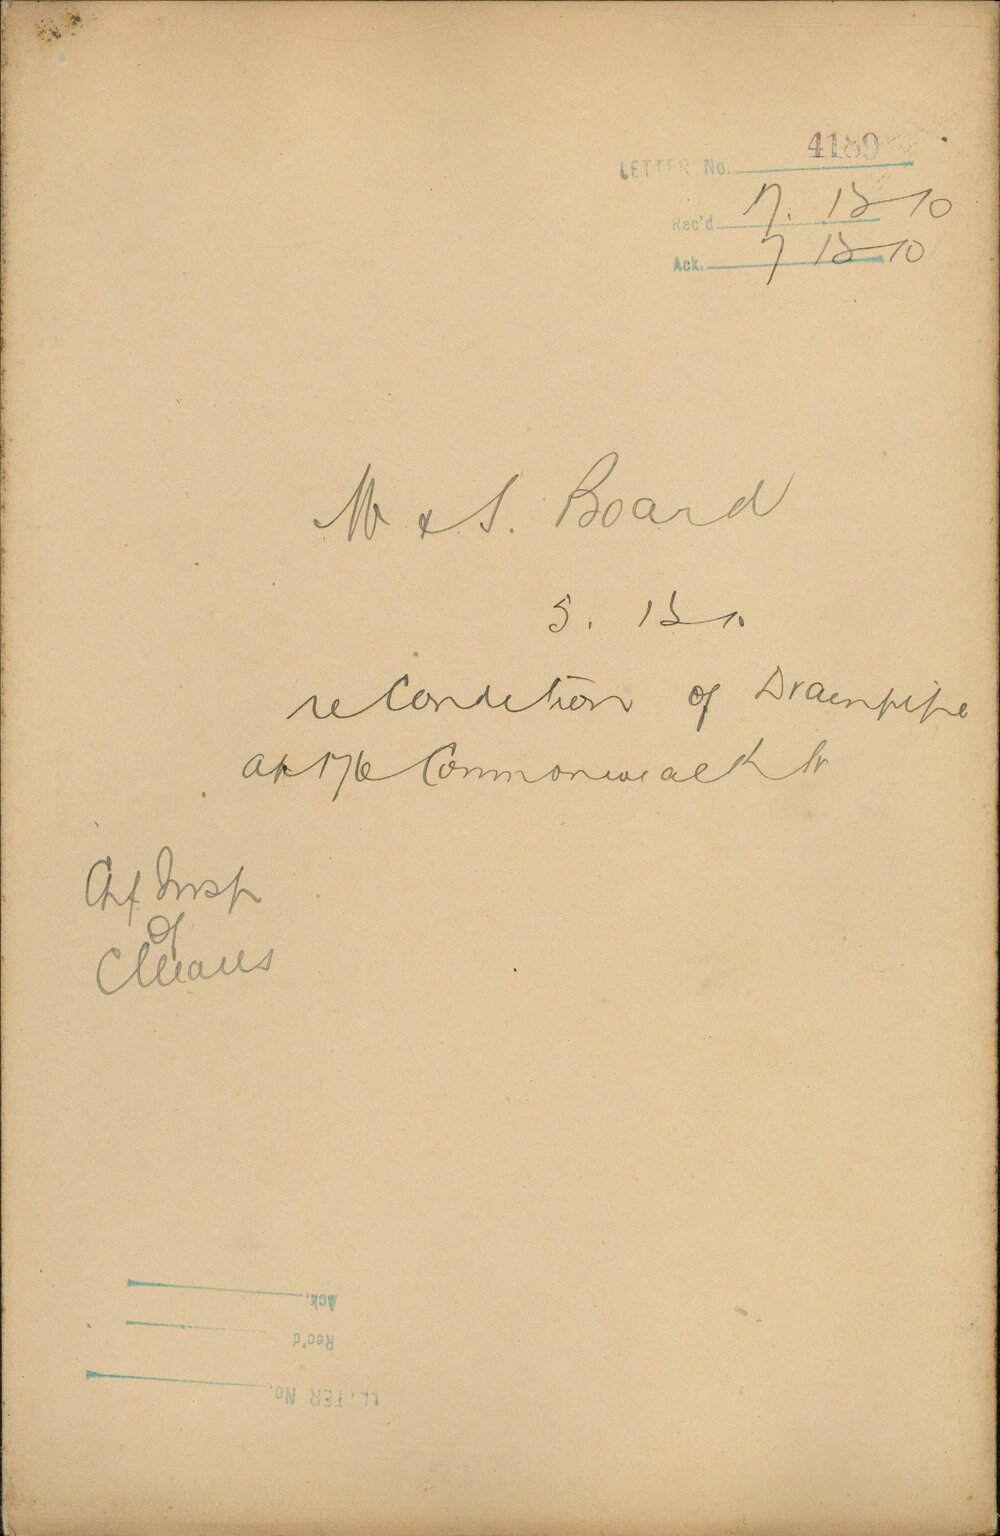 4189
LETTER No.
Rec'd 7. 12 10
Ack. 7 12 10
M & S. Board
5. 12 10
re Condition of Drainpipe
at 176 Commonwealth St
Chf Insp
of
Ack.
Rec'd
LETTER No.